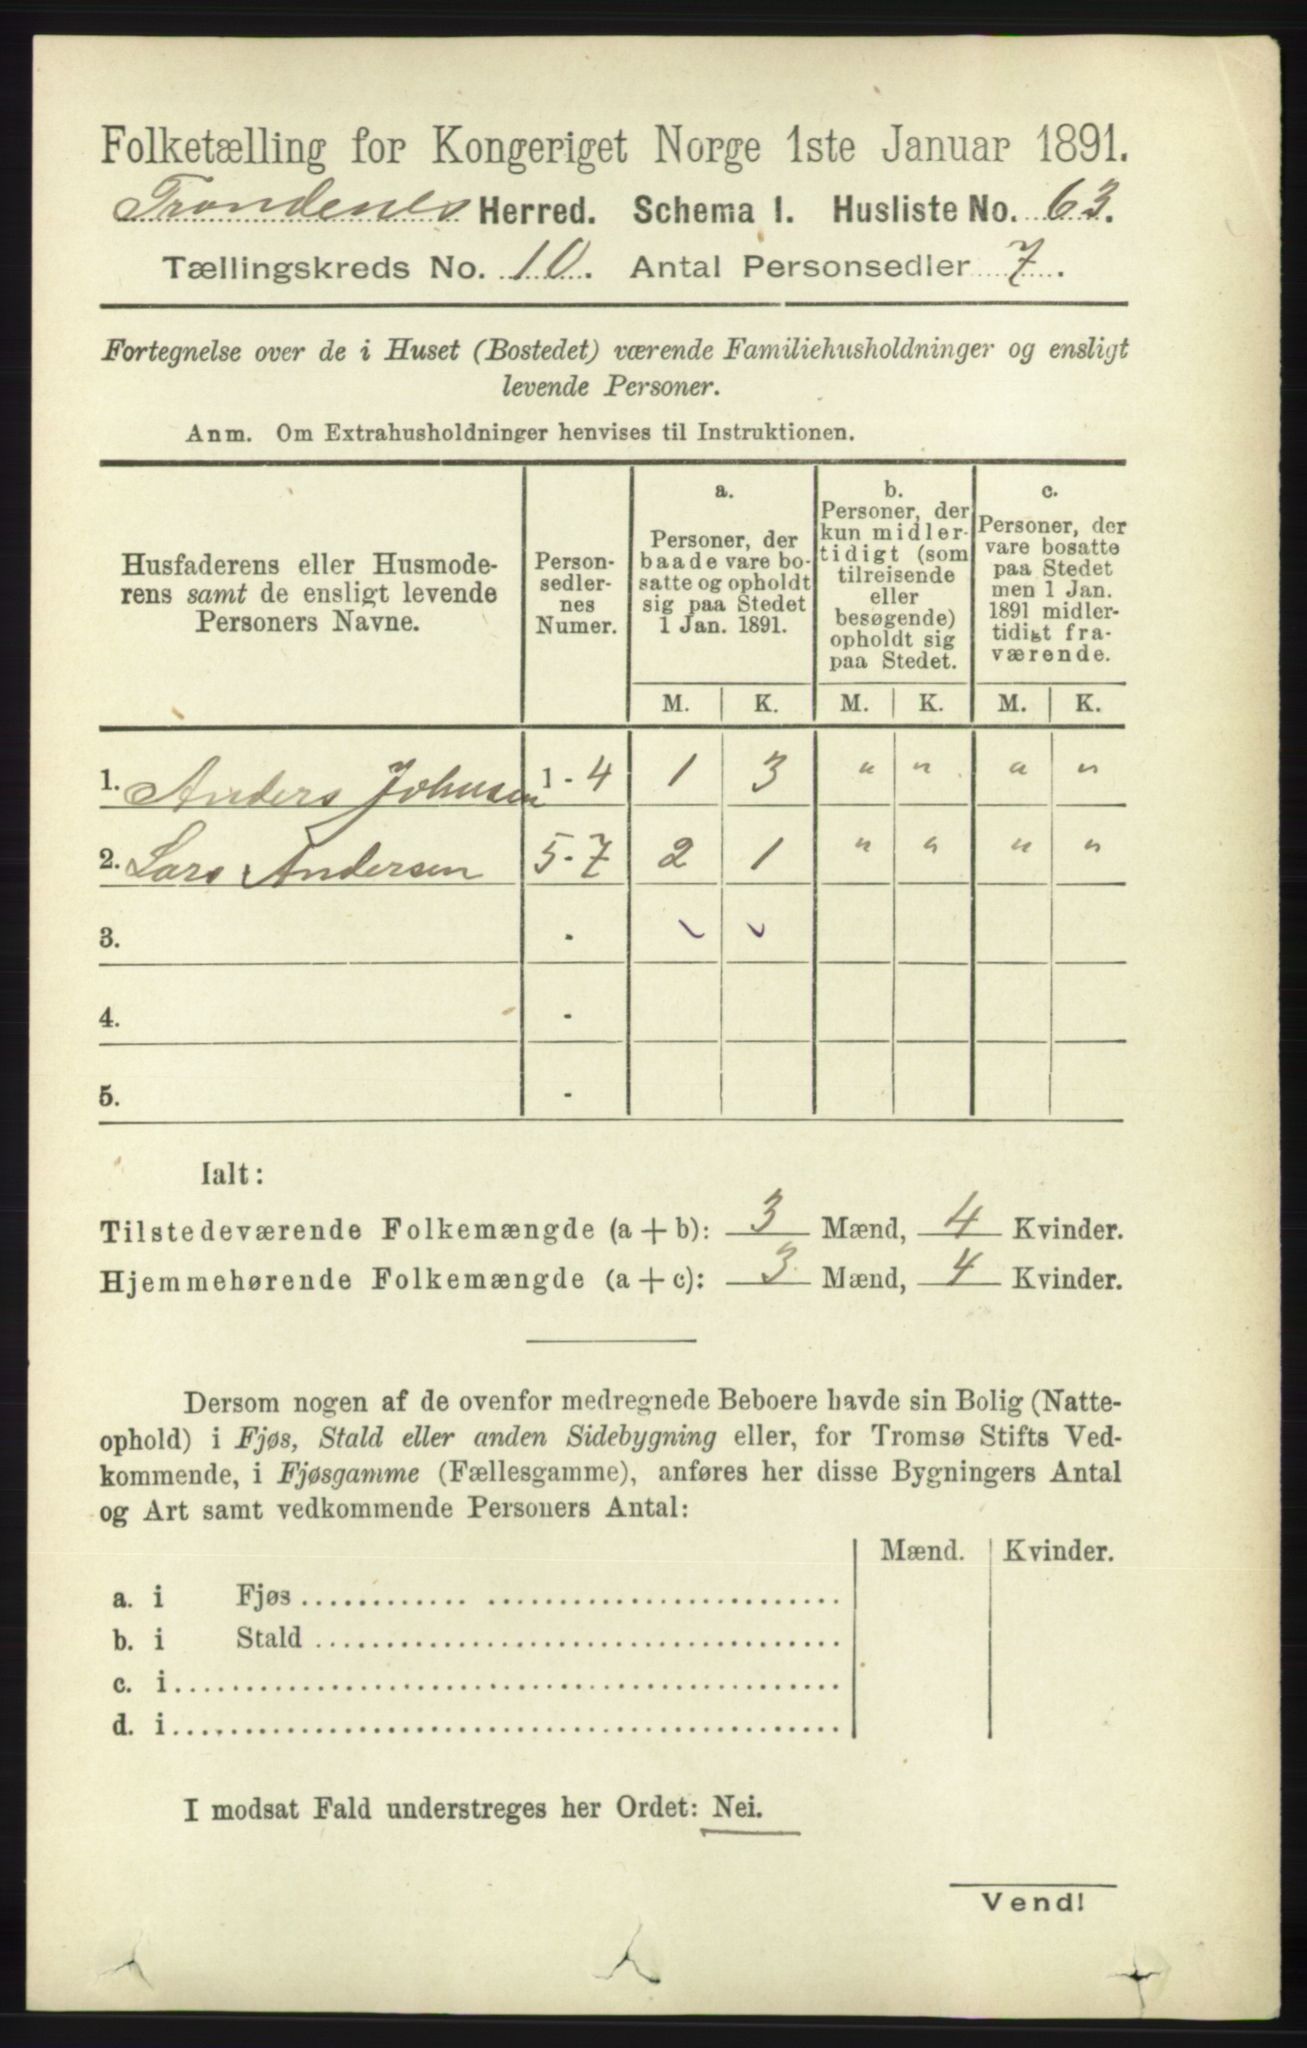 Folketælling for Kongeriget Norge 1ste Januar 1891.
Trondenes Herred. Schema 1. Husliste No. 63.
Tællingskreds No. 10. Antal Personsedler 7.
Fortegnelse over de i Huset (Bostedet) værende Familiehusholdninger og ensligt
levende Personer.
Anm. Om Extrahusholdninger henvises til Instruktionen.
Husfaderens eller Husmode-
rens samt de ensligt levende
Personers Navne.
Person-
sedler-
nes
Numer.
a.
Personer, der
baade vare bo-
satte og opholdt
sig paa Stedet
1 Jan. 1891.
b.
Personer, der
kun midler-
tidigt (som
tilreisende
eller
besøgende)
opholdt sig
paa Stedet.
c.
Personer, der
vare bosatte
paa Stedet
men 1 Jan.
1891 midler-
tidigt fra-
værende.
M. K. M. K. M. K.
1. Anders Johnsen 1 - 4 1 3 " " " "
2. Lars Andersen 5 - 7 2 1 " " " "
3. -
4. -
5. -
Ialt:
Tilstedeværende Folkemængde (a + b): 3 Mænd, 4 Kvinder.
Hjemmehørende Folkemængde (a + c): 3 Mænd, 4 Kvinder.
Dersom nogen af de ovenfor medregnede Beboere havde sin Bolig (Natte-
ophold) i Fjøs, Stald eller anden Sidebygning eller, for Tromsø Stifts Ved-
kommende, i Fjøsgamme (Fællesgamme), anføres her disse Bygningers Antal
og Art samt vedkommende Personers Antal:
Mænd. Kvinder.
a. i Fjøs
b. i Stald
c. i
d. i
I modsat Fald understreges her Ordet: Nei.
Vend!